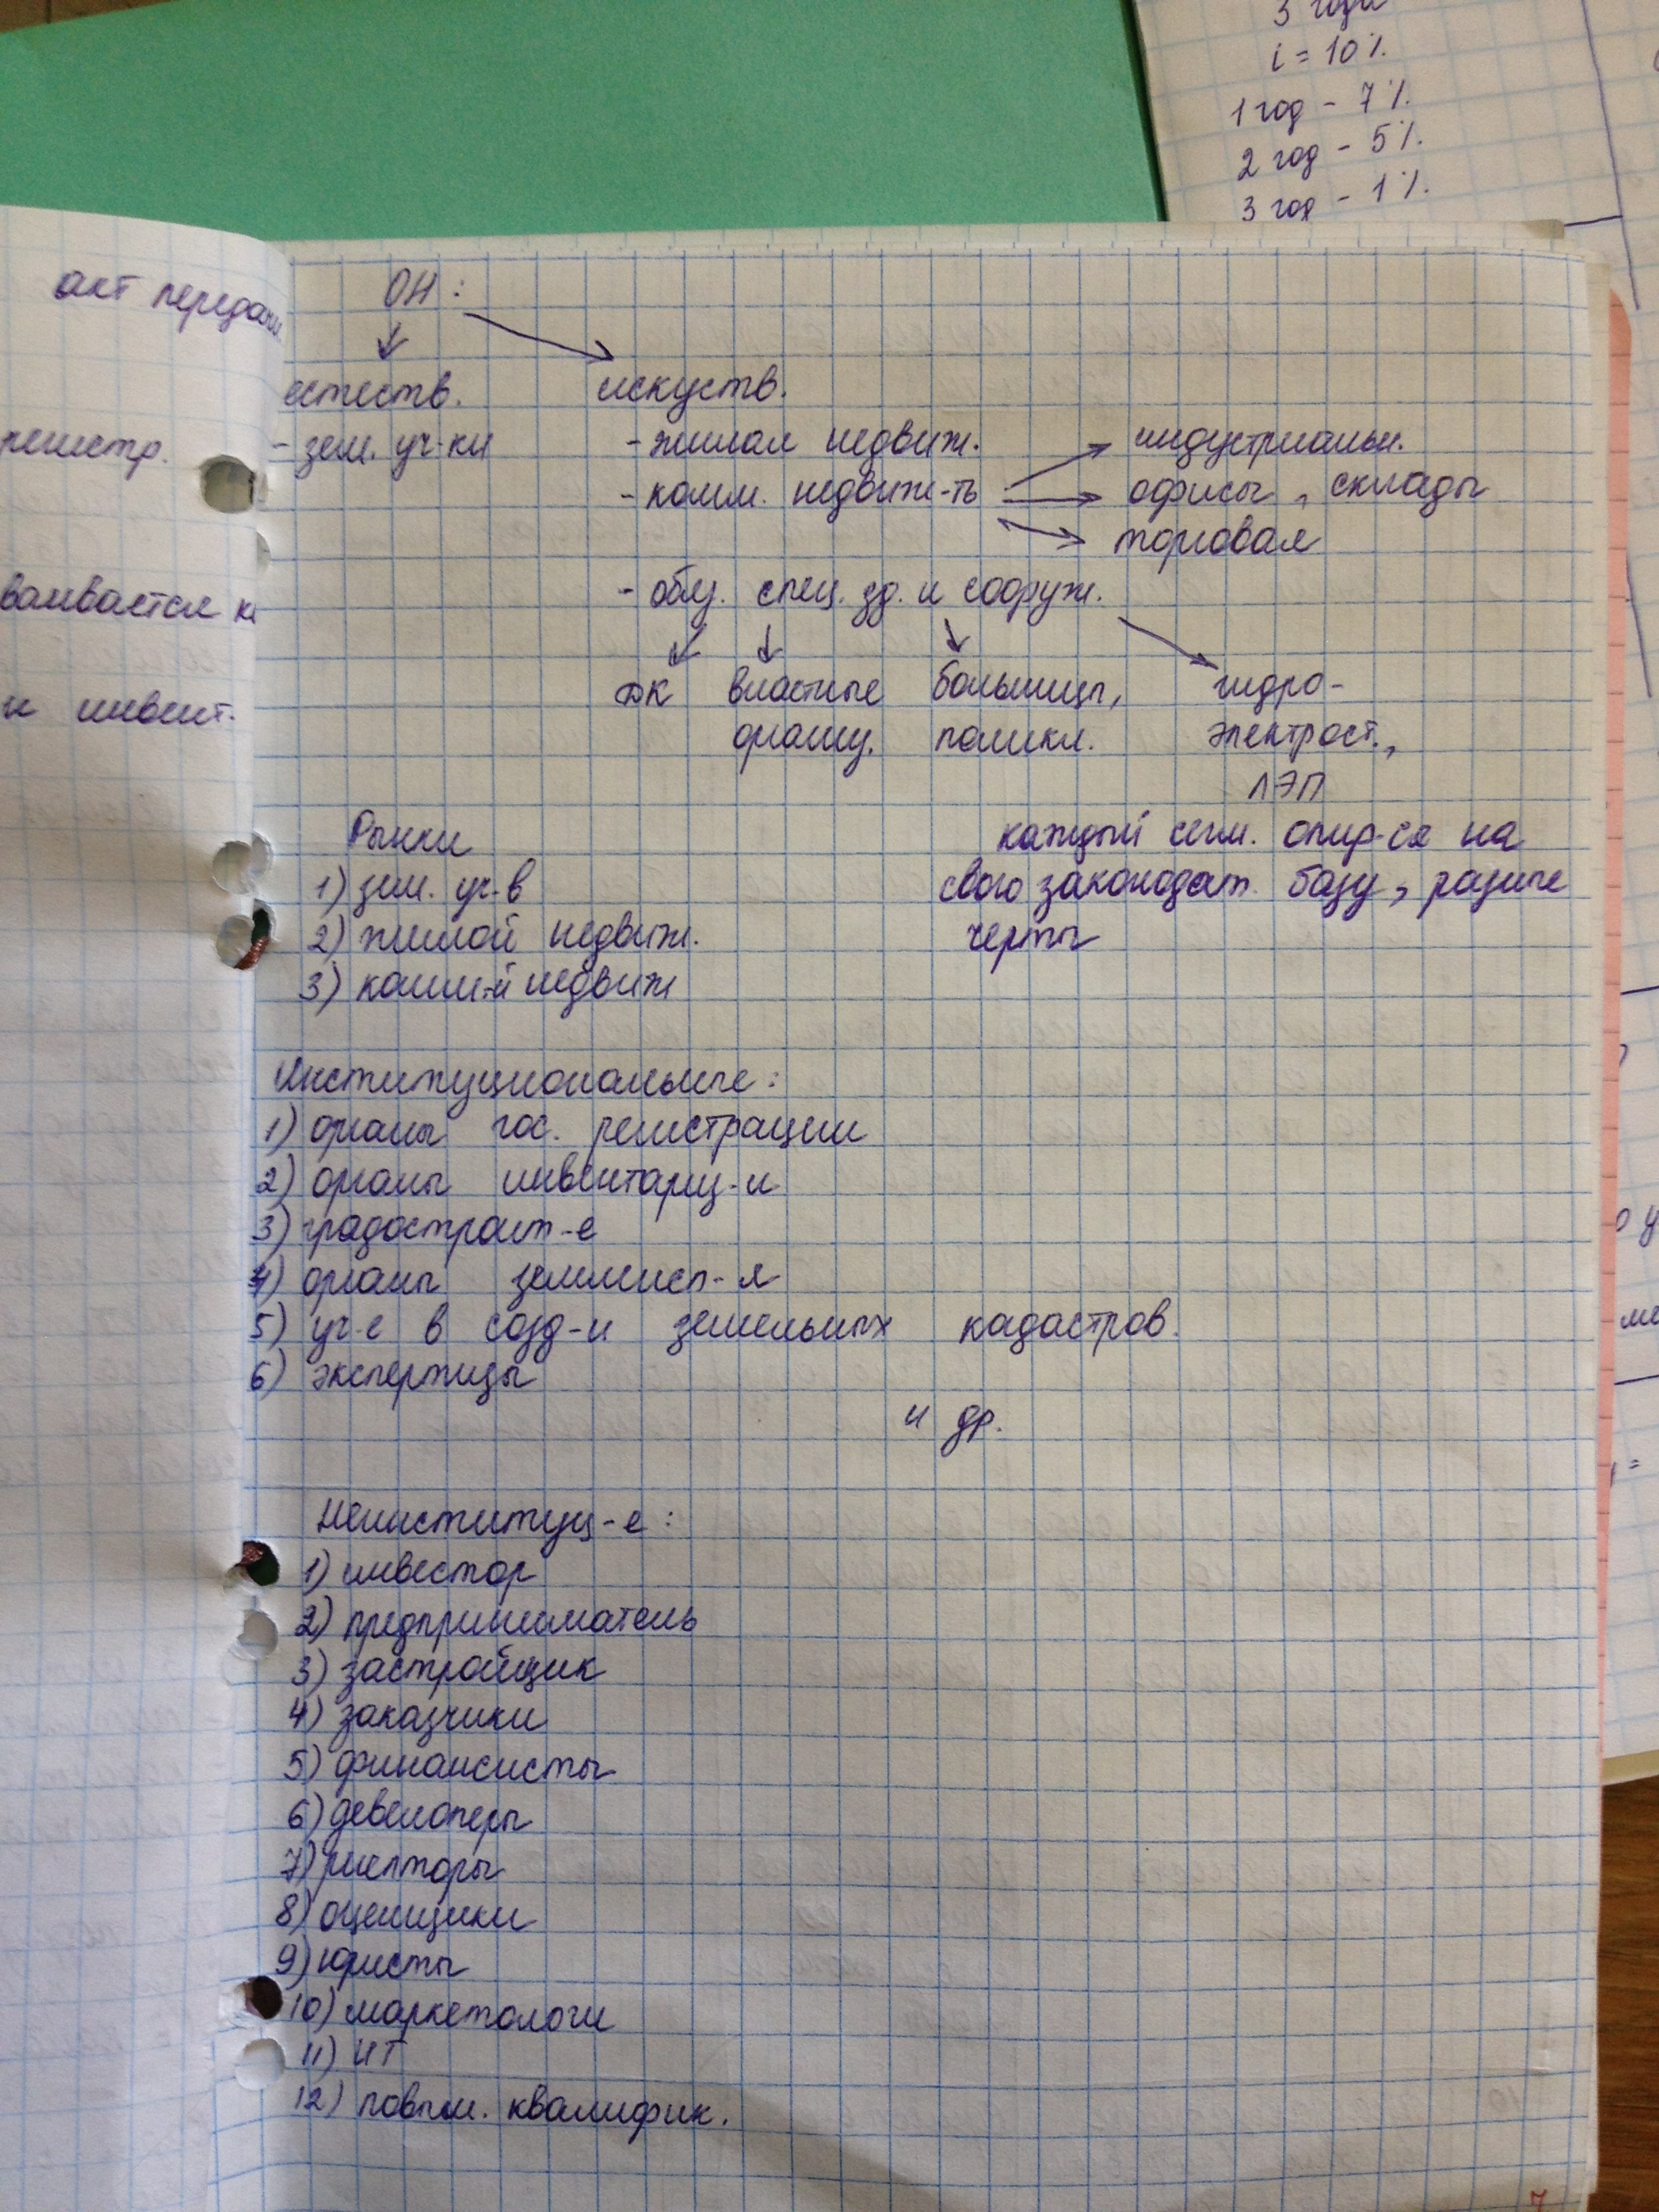 3 года
i = 10%.
1 год - 7%.
2 год - 5%.
3 год - 1%.
акт передачи
регистр.
ваивается
и инвент.
ОН:
естеств. искуств.
- зем. уч-ки - жилая недвиж. индустриальн.
- комм. недвиж-ть офисы, склады
торговая
- общ. спец. зд. и сооруж.
ДК властные больницы, гидро-
организ. поликл. электрост.,
ЛЭП
Рынки каждый сегм. опир-ся на
1) зем. уч-в свою законодат. базу, разные
2) жилой недвиж. черты
3) комм-й недвиж
Институциональные:
1) органы гос. регистрации
2) органы инвентариз-и
3) градостроит-е
4) органы землеисп-я
5) уч-е в созд-и земельных кадастров.
6) экспертизы
и др.
Неинституц-е:
1) инвестор
2) предприниматель
3) застройщик
4) заказчики
5) финансисты
6) девелоперы
7) риелторы
8) оценщики
9) юристы
10) маркетологи
11) ИТ
12) повыш. квалифик.
7